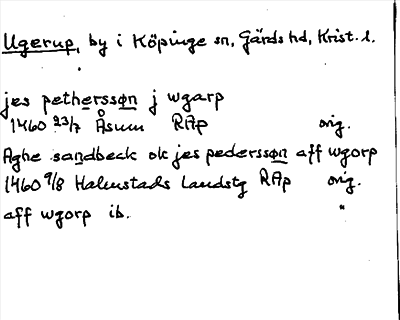 Ugerup, by i Köpinge sn, Gärds hd, Krist. l.
jes petherssøn j wgarp
1460 23/7 Åsum RAp orig.
Aghe sandbeck ok jes pederssøn aff wgorp
1460 9/8 Halmstads landstg RAp orig.
aff wgorp ib. "